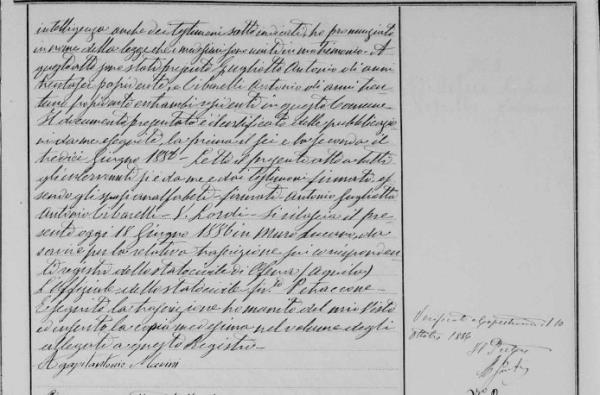 intelligenza anche dei testimoni sotto indicati ho pronunziato
in nome della legge che i medesimi sono uniti in matrimonio. A
quest'atto sono stati presenti Guglietta Antonio di anni
trentasei possidente, e Cibarelli Antonio di anni tren
tuno possidente entrambi residenti in questo Comune
Il documento presentato è il certificato delle pubblicazio
ni da me eseguite, la prima il sei e la seconda il
tredici Giugno 1886. Letto il presente atto a tutti
gli intervenuti si è da me e dai testimoni firmato, es
sendo gli sposi analfabeti. firmati. Antonio Guglietta
Antonio Cibarelli - Lordi - Si rilascia il pre
sente oggi 18 Giugno 1886 in Muro Lucano, da
servire per la relativa trascrizione sui corrispondenti
registri dello stato civile di (Aquila)
L'Uffiziale dello stato civile Petraccone
Eseguita la trascrizione ho munito del mio Visto
ed inserito la copia medesima nel volume degli
allegati a questo Registro
Agapitantonio
Verificato il 10
Ottobre 1886
Il